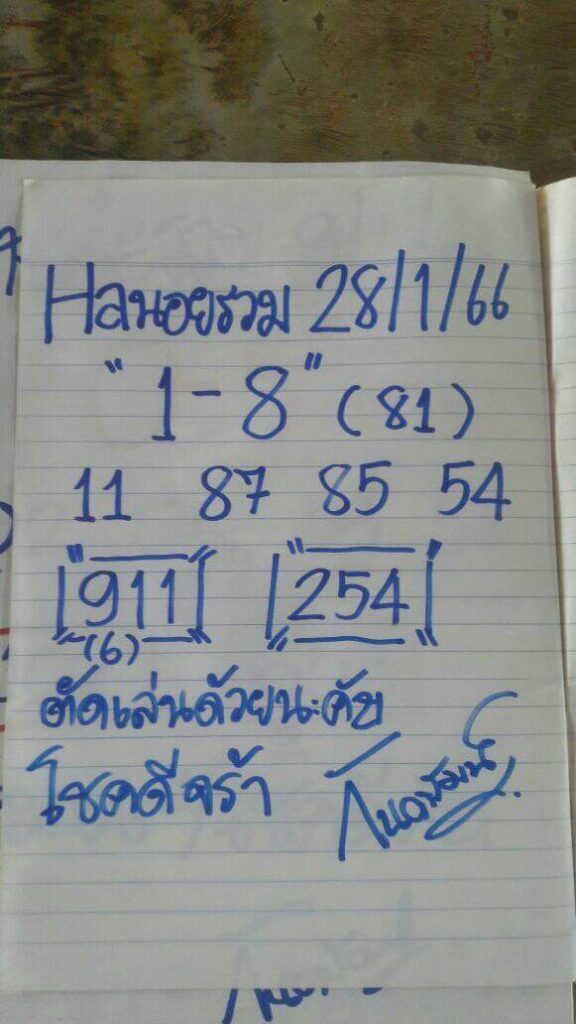 Hanoยรวม 28/1/66
"1-8" (81)
11 87 85 54
911 254
(6)
ตัดเล่นด้วยนะคับ
โชคดีจร้า